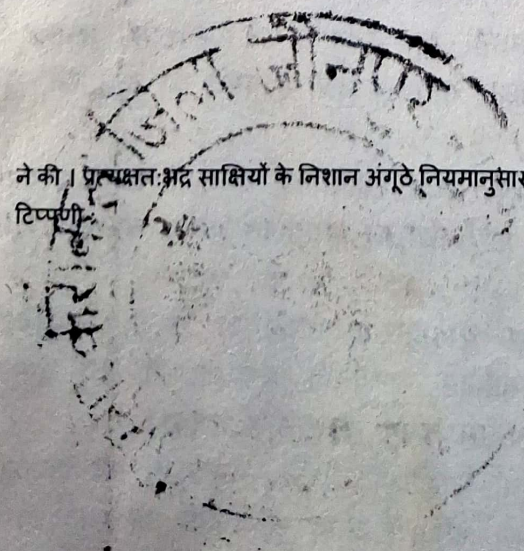 जिला जौनपुर
ने की । प्रत्यक्षतःभद्र साक्षियों के निशान अंगूठे नियमानुसार
टिप्पणी